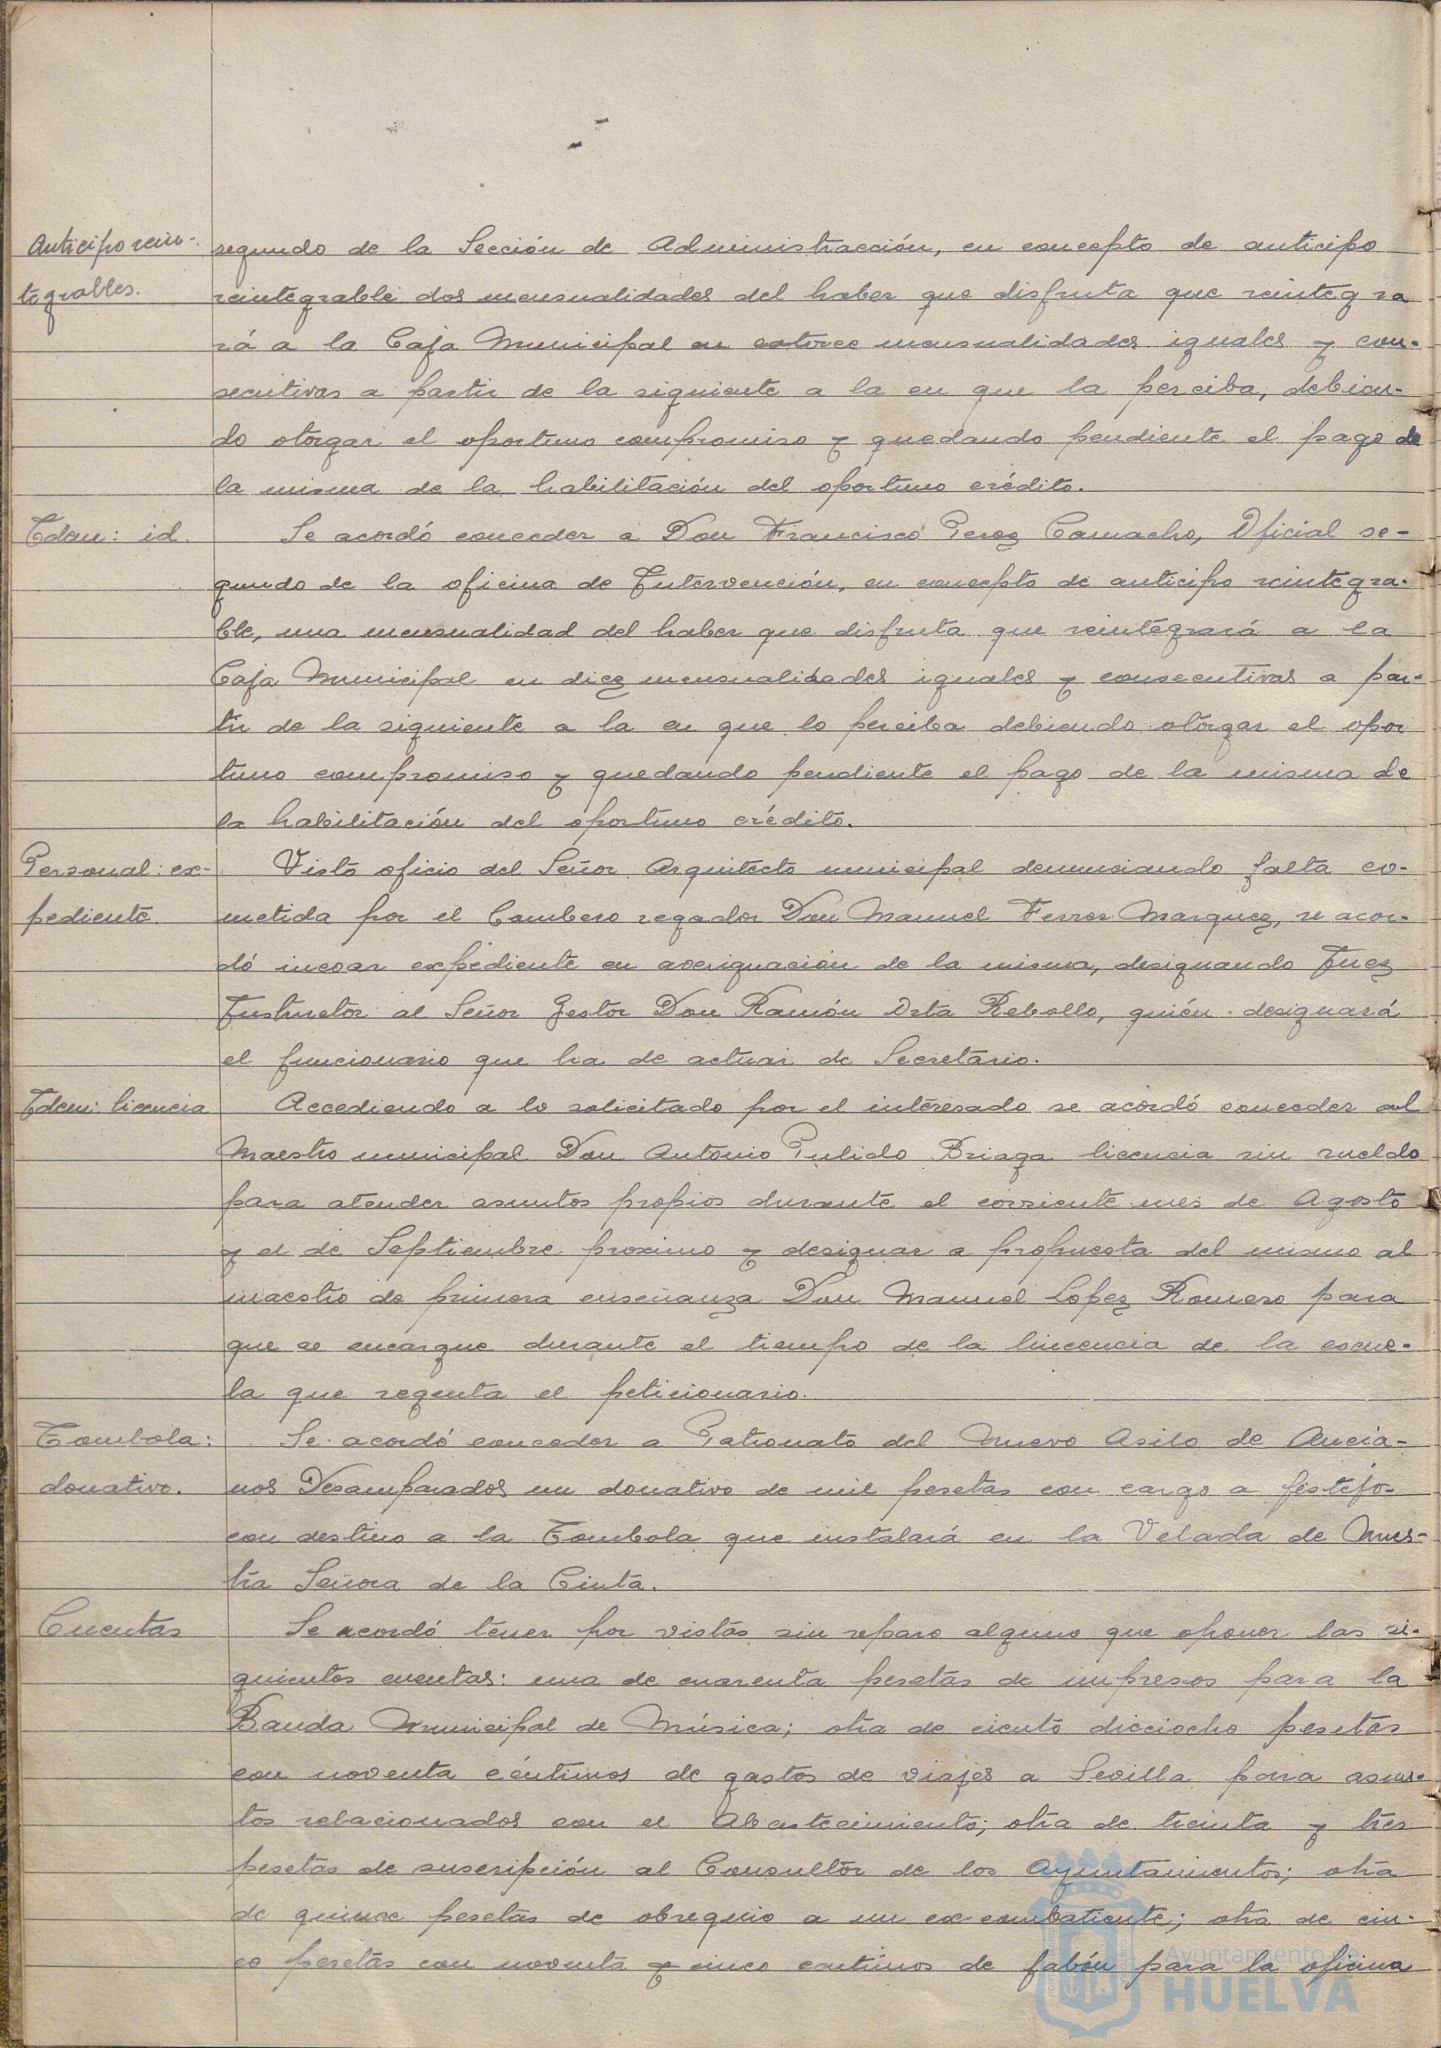 Anticipo rein-
tegrables.
segundo de la Sección de Administracción, en concepto de anticipo
reintegrable dos mensualidades del haber que disfruta que reintegra
rá a la Caja Municipal en catorce mensualidades iguales y con-
secutivas a partir de la siguiente a la en que la perciba, debien-
do otorgar el oportuno compromiso y quedando pendiente el pago de
la misma de la habilitación del oportuno crédito.
Idem: id.
Se acordó conceder a Don Francisco Perez Camacho, Oficial se-
gundo de la oficina de Intervención, en concepto de anticipo reintegra-
ble, una mensualidad del haber que disfruta que reintégrará a la
Caja Municipal en diez mensualidades iguales y consecutivas a par-
tir de la siguiente a la en que lo perciba debiendo otorgar el opor
tuno compromiso y quedando pendiente el pago de la misma de
la habilitación del oportuno crédito.
Personal: ex-
pediente.
Visto oficio del Señor Arquitecto municipal denunciando falta co-
metida por el Cambero regador Don Manuel Ferrer Marquez, se acor-
dó incoar expediente en averiguación de la misma, designando Juez
Instructor al Señor Gestor Don Ramón Orta Rebollo, quién designará
el funcionario que ha de actuar de Secretario.
Idem: licencia
Accediendo a lo solicitado por el interesado se acordó conceder al
Maestro municipal Don Antonio Pulido Briaga licencia sin sueldo
para atender asuntos propios durante el corriente mes de Agosto
y el de Septiembre proximo y designar a propuesta del mismo al
maestro de primera enseñanza Don Manuel Lopez Romero para
que se encargue durante el tiempo de la lincencia de la escue-
la que regenta el peticionario.
Tombola:
donativo.
Se acordó conceder a Patronato del Nuevo Asilo de Ancia-
nos Desamparados un donativo de mil pesetas con cargo a festejos
con destino a la Tombola que instalará en la Velada de Nues-
tra Señora de la Cinta.
Cuentas
Se acordó tener por vistas sin reparo alguno que oponer las si-
guientes cuentas: una de cuarenta pesetas de impresos para la
Banda Municipal de Música; otra de ciento dieciocho pesetas
con noventa céntimos de gastos de viajes a Sevilla para asun-
tos relacionados con el Abastecimiento; otra de treinta y tres
pesetas de suscripción al Consultor de los Ayuntamientos; otra
de quince pesetas de obsequio a un ex-combatiente; otra de cin-
co pesetas con noventa y cinco centimos de jabón para la oficina
Ayuntamiento de
HUELVA